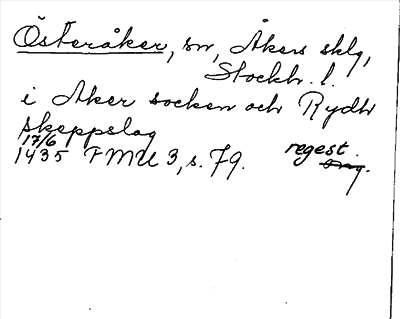 Österåker, sn, Åkers sklg,
Stockh. l.
i Aker socken och Rydh
skeppslag
17/6
1435 FMU 3, s. 79. regest.
orig.